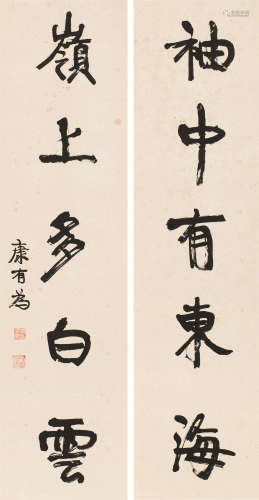 袖中有東海
嶺上多白雲
康有為